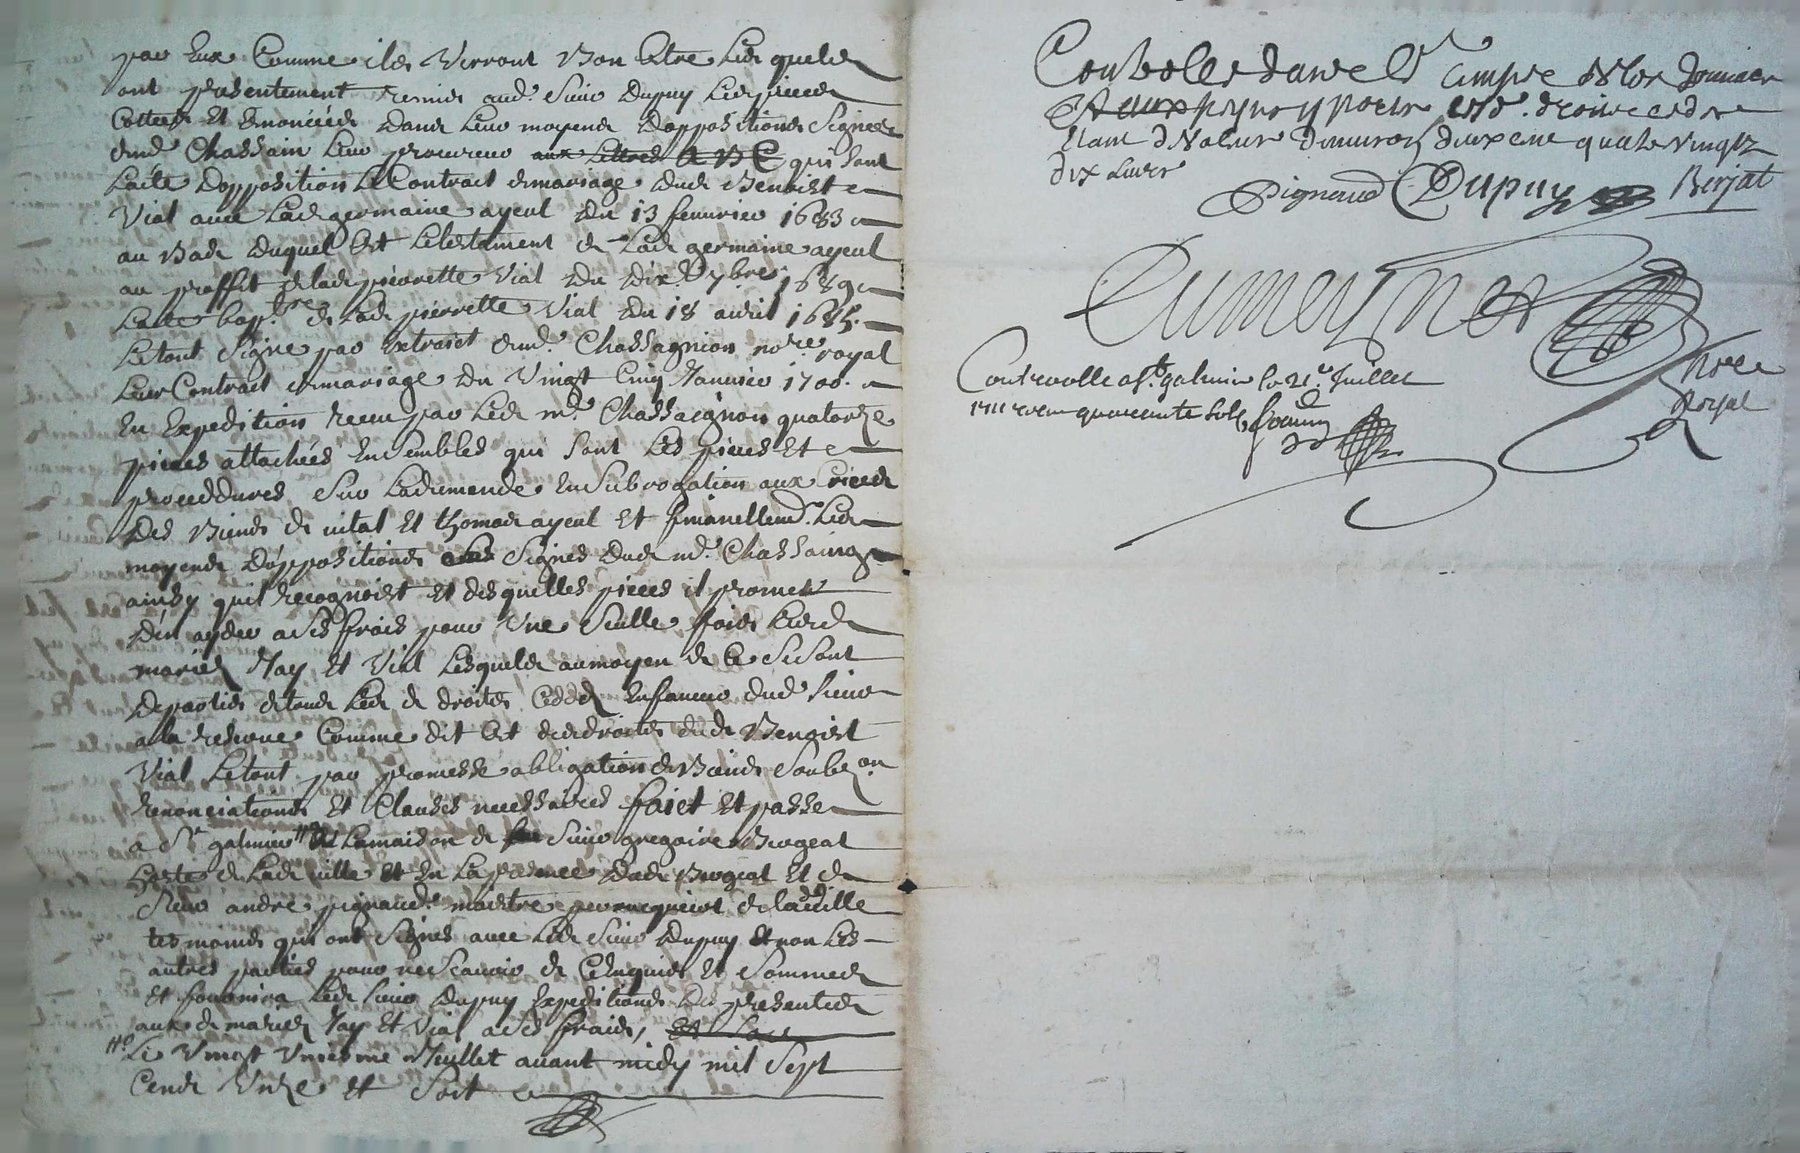 par Eux Comme ils Verront Bon Estre Lesquels
ont presentement remis aud. Sieur Dupuy Les pieces
Cottees Et Enoncées dans Leur moyens Doppositions Signes
dud. Chassain Leur procureur aux Lettres A B C qui sont
Lacte Dopposition Le Contract de mariage Dud. Benoist
Vial avec Lad. germaine ayeul du 13 feuurier 1683
au Bas duquel Est Letestament de Lad. germaine ayeul
au proffit de lad. pierrette Vial du dix 7bre 1689
Lacte bap.tre de Lad. pierrette Vial du 18 auril 1685.
Le tout Signé par Extraict dud. Chassagnion nore. royal
Leur Contract de mariage du Vingt Cinq Januier 1700.
En Expedition receu par Led. me. Chassaignon quatorze
pieces attachées Ensembles qui sont Les pieces Et
proceddures sur La demande En Subrogation aux
Des Biens de vital Et thomas ayeul Et finallemt. Les
moyens D'oppositions Signes Dud. me. Chassaing
ainsy quil recognoist et desquelles pieces il promet
D'en ayder a ses frais pour Vne Seulle fois Lesd.
mariez Jay Et Vial Lesquels aumoyen de Ce se sont
Departies de tous Lesd. droits Ceddez En faueur dud. Sieur
a la reserue Comme dit Est des droits dud. Benoist
Vial Le tout par promesse obligation de Biens Soubzon
Renonciations Et Clauses necessaires faict Et passé
a St. galmier Lamaison de Sieur gregoire Brogeat
hoste de Lad. ville Et En La presence Dud. Brogeat Et de
Sieur andré pignaud maistre perruquier de lad. ville
tesmoins qui ont Signes auec Led. Sieur Dupuy Et non Les
autres parties pour ne Scauoir de Ce Enquis Et Sommes
Et fournira Led. Sieur Dupuy Expeditions Des presentes
aux d. mariez Jay Et Vial a ses frais, Et Lac
Le Vingt Vniesme Jeuillet auant midy mil Sept
Cents Vnze Et Soit
Controlle dans
Et aux
Estant d Valeur deux cent quatre vingtz
dix Liures
Pignaud Dupuy Berjat
Dumeynes
nore
Royal
Controolle a St. galmier le 21e Juillet
1711 receu quarante sols